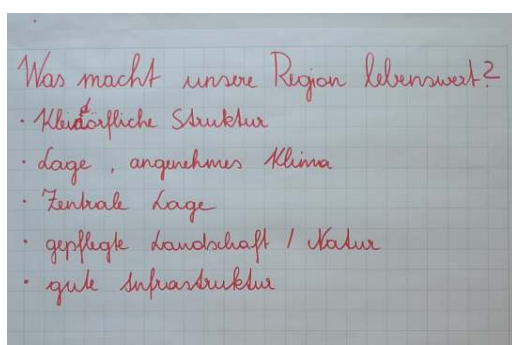 Was macht unsere Region lebenswert?
· Kleindörfliche Struktur
· Lage, angenehmes Klima
· Zentrale Lage
· gepflegte Landschaft / Natur
· gute Infrastruktur